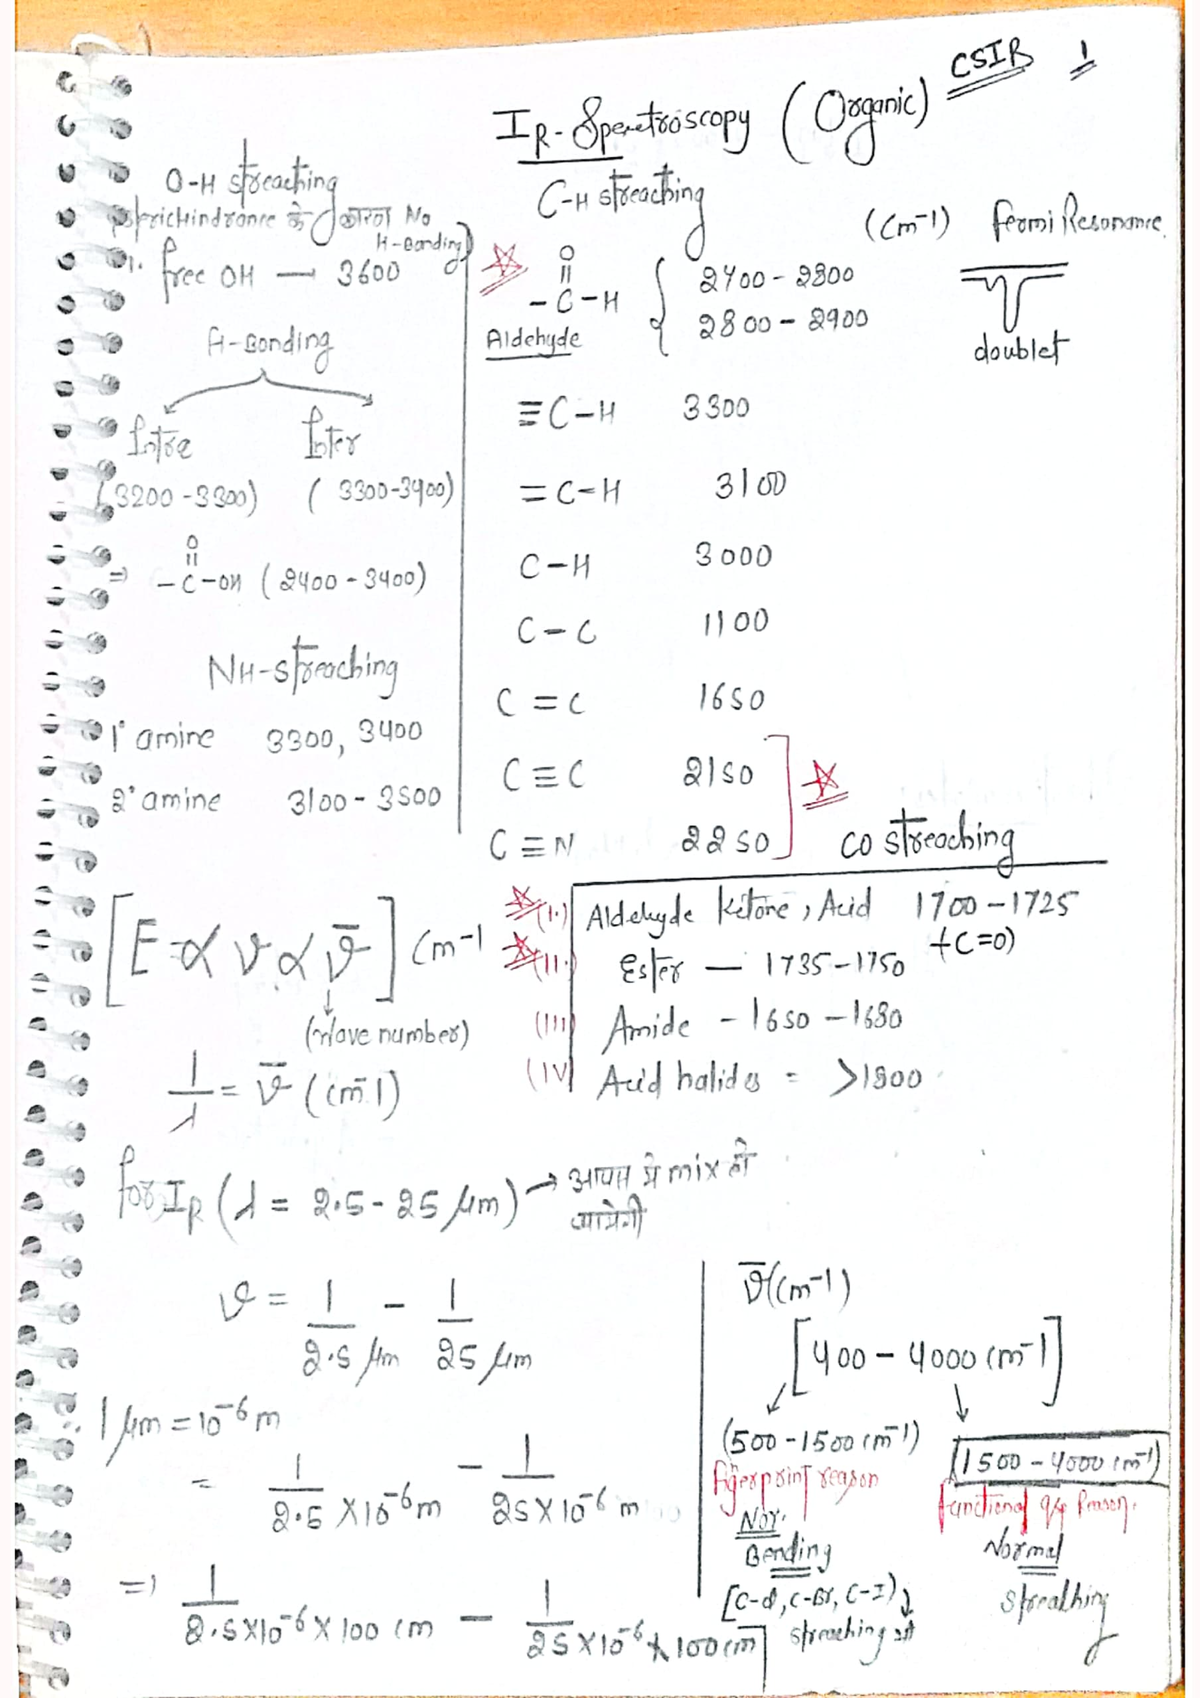 CSIR 1
IR-Spectroscopy (Organic)
O-H streaching
sterichindrance के कारण No
H-Bonding)
1. free OH — 3600
H-Bonding
Intra Inter
(3200-3300) (3300-3400)
O
=> -C-OH (2400-3400)
NH-streaching
1° amine 3300, 3400
2° amine 3100-3500
C-H streaching
(cm-1) fermi Resonance.
O
-C-H { 2700-2800
2800-2900
Aldehyde
doublet
≡C-H 3300
=C-H 3100
C-H 3000
C-C 1100
C=C 1650
C≡C 2150
C≡N 2250
CO streaching
(I.) Aldehyde Ketone, Acid 1700-1725
(C=O)
(II.) Ester — 1735-1750
(III) Amide - 1650-1680
(IV) Acid halides = >1800
[E ∝ ν ∝ ν̄] cm-1
(Wave number)
1/λ = ν̄ (cm-1)
for IR (λ = 2.5-25 μm) → आपस मे mix हो
जायेगी
ν = 1/2.5 μm - 1/25 μm
∵ 1 μm = 10-6 m
= 1/2.5 × 10-6 m - 1/25×10-6 m
=> 1/2.5×10-6 × 100 cm - 1/25×10-6 × 100 cm
ν̄ (cm-1)
[400-4000 cm-1]
(500-1500 cm-1)
fingerprint reason
Nor.
Bending
[C-Cl, C-Br, C-I)
streaching भी
(1500-4000 cm-1)
functional grp Reason.
Normal
Streathing